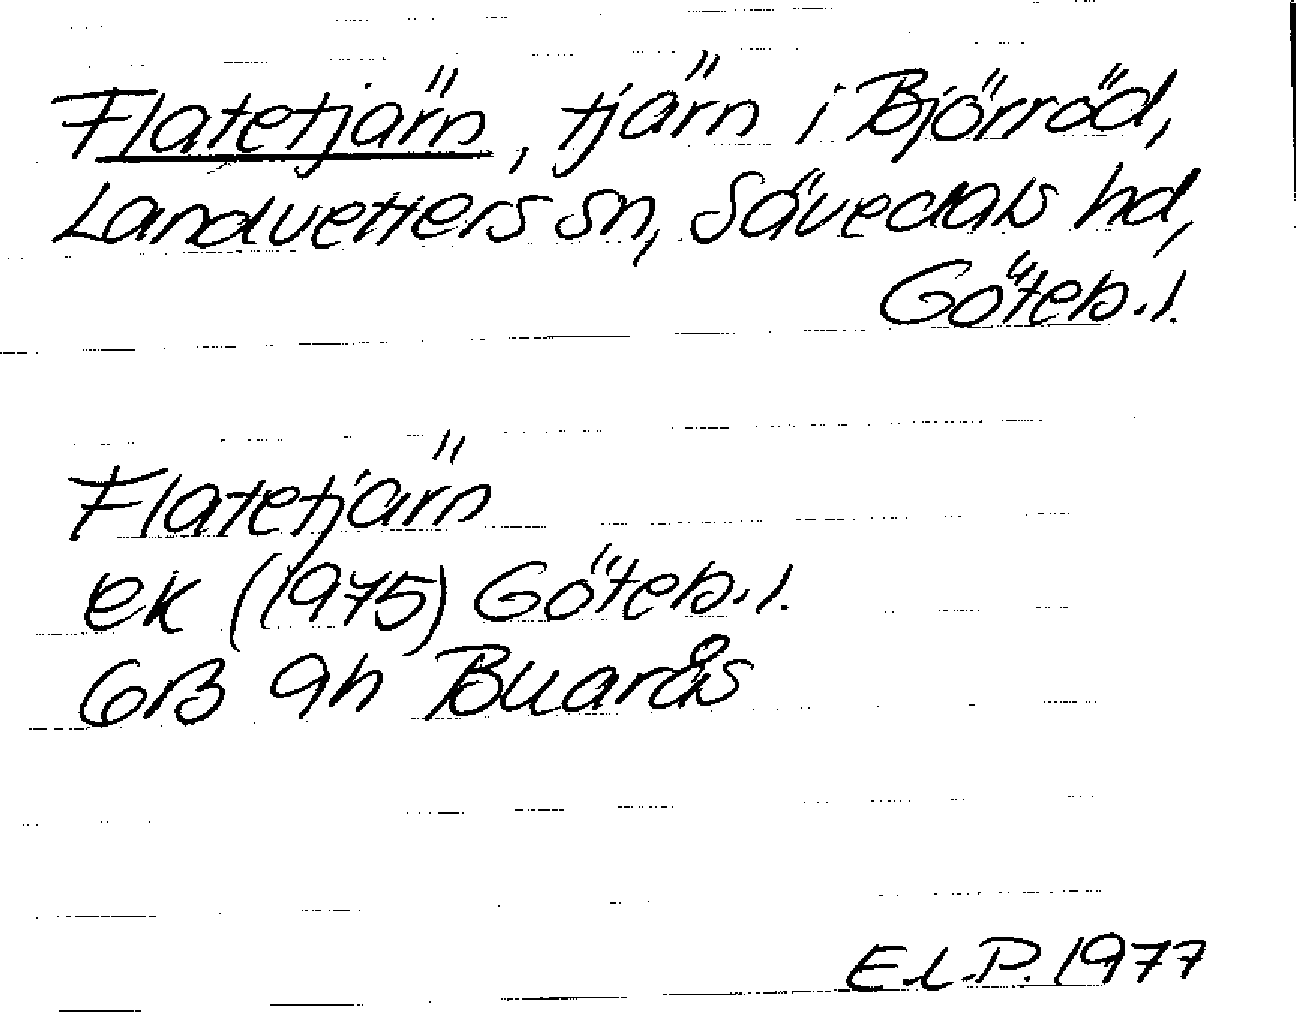 Flatetjärn, tjärn i Björröd,
Landvetters sn, Sävedals hd,
Göteb. l.
Flatetjärn
ek (1975) Göteb. l.
6B 9h Buarås
E.L.P. 1977